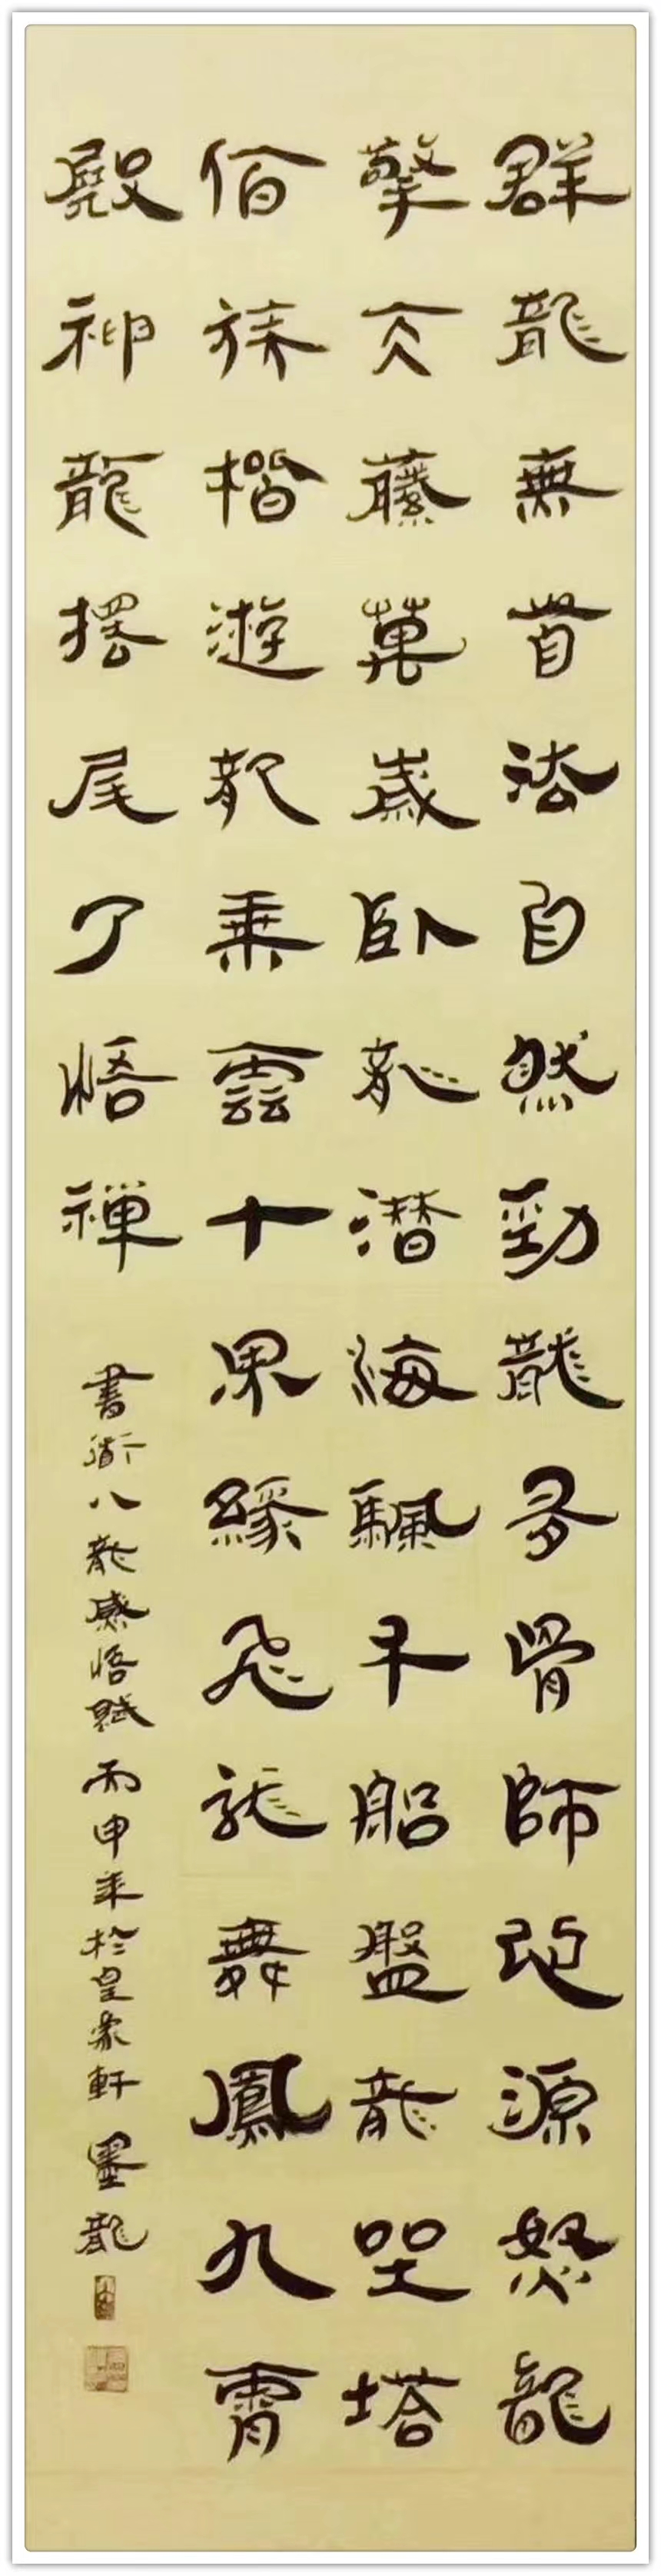 群龍無首法自然勁龍多骨師地源怒龍
擎天藤萬歲臥龍潛海颿千船盤龍坐塔
佰族楷遊龍乘雲十界緣飛龍舞鳳九霄
殿神龍擺尾了悟禅
書術八龍感悟賦丙申年於皇象軒墨龍